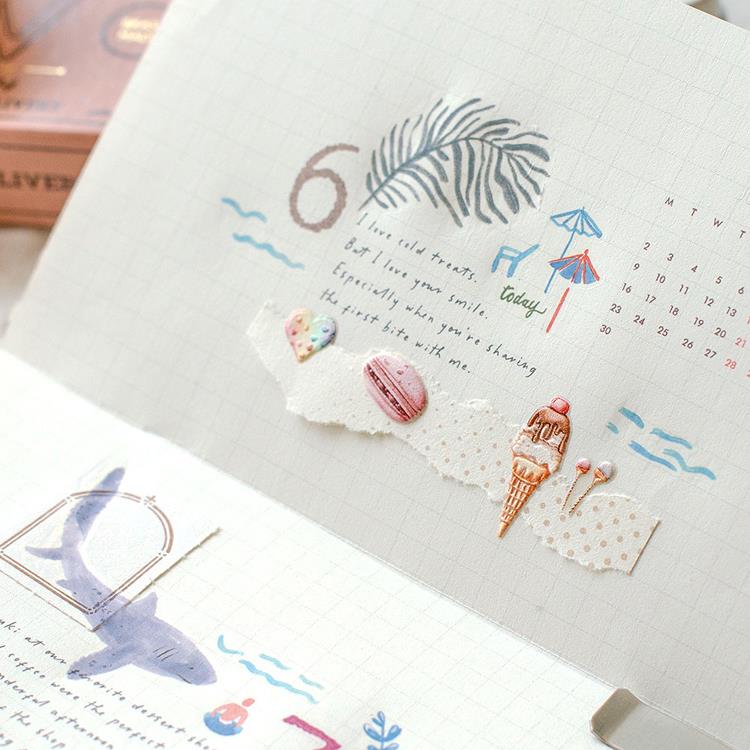 LIVER
6
I love cold treats.
But I love your smile.
Especially when you're sharing
the first bite with me.
today
M T W T
2 3 4 5 6
9 10 11 12 13
16 17 18 19 20 21
23 24 25 26 27 28
30
at our favorite dessert
coffee were the perfect
afternoon
the shop
7